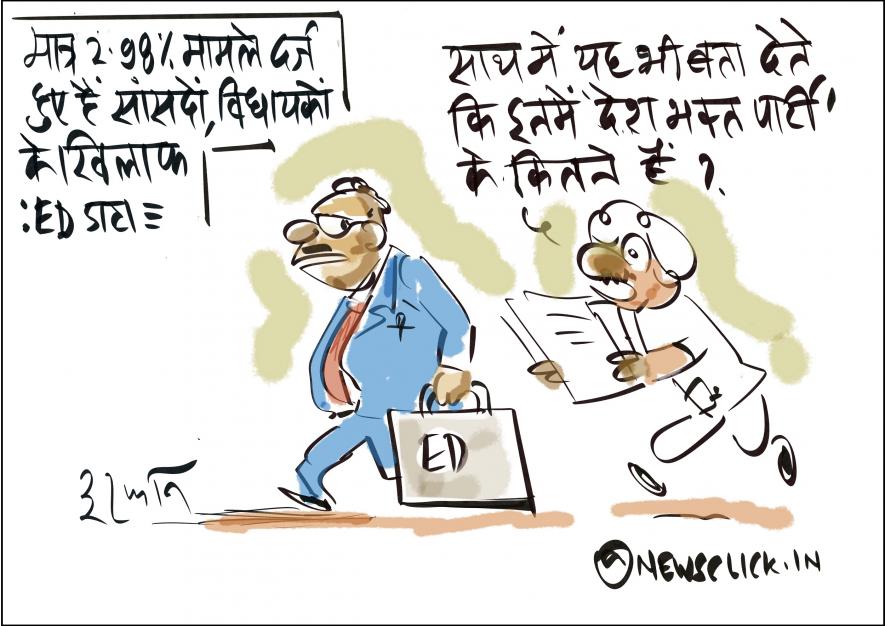 मात्र 2.98% मामले दर्ज
हुए हैं सांसदों, विधायकों
के खिलाफ
:ED डाटा
साथ में यह भी बता देते
कि इनमें 'देश भक्त पार्टी'
के कितने हैं ?
ED
इरफान
NEWSCLICK.IN